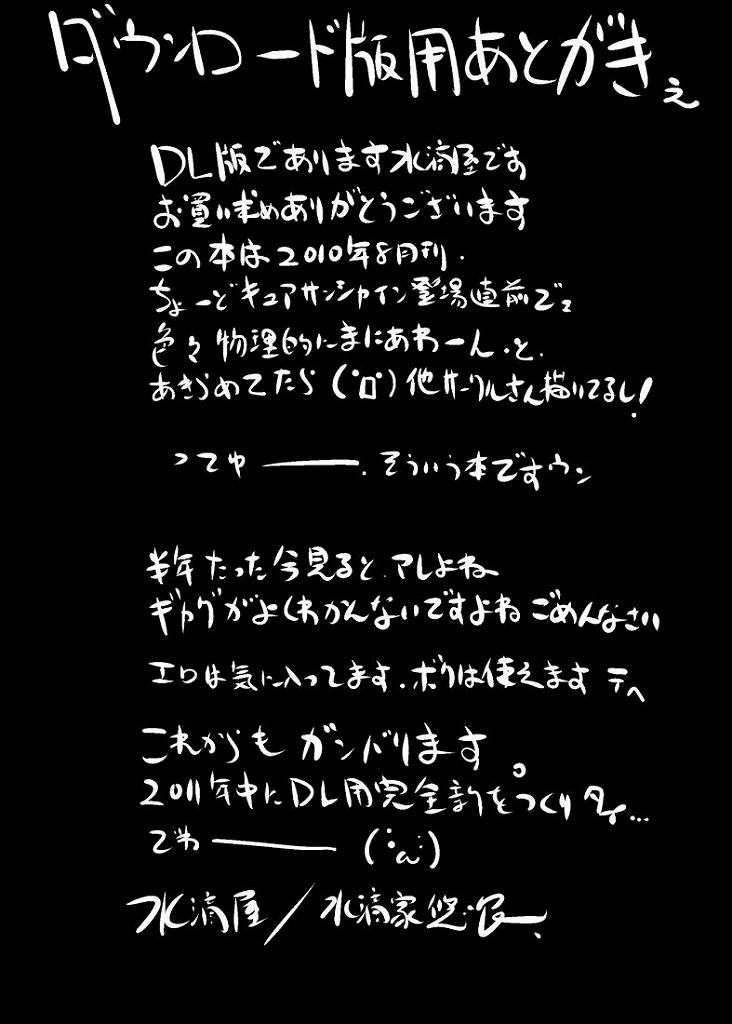 ダウンロード版用あとがきぇ
DL版であります水滴屋です
お買い求めありがとうございます
この本は2010年8月刊.
ちょーどキュアサンシャイン登場直前で
色々物理的にまにあわーん.と.
あきらめてたら(゚Д゚)他サークルさん描いてるし!
ってゆ――.そういう本ですウン
半年たった今見ると.アレよね
ギャグがよくわかんないですよねごめんなさい
エロは気に入ってます.ボクは使えます テヘ
これからもガンバります。
2011年中にDL用完全新をつくり
でわ――
水滴屋/水滴家